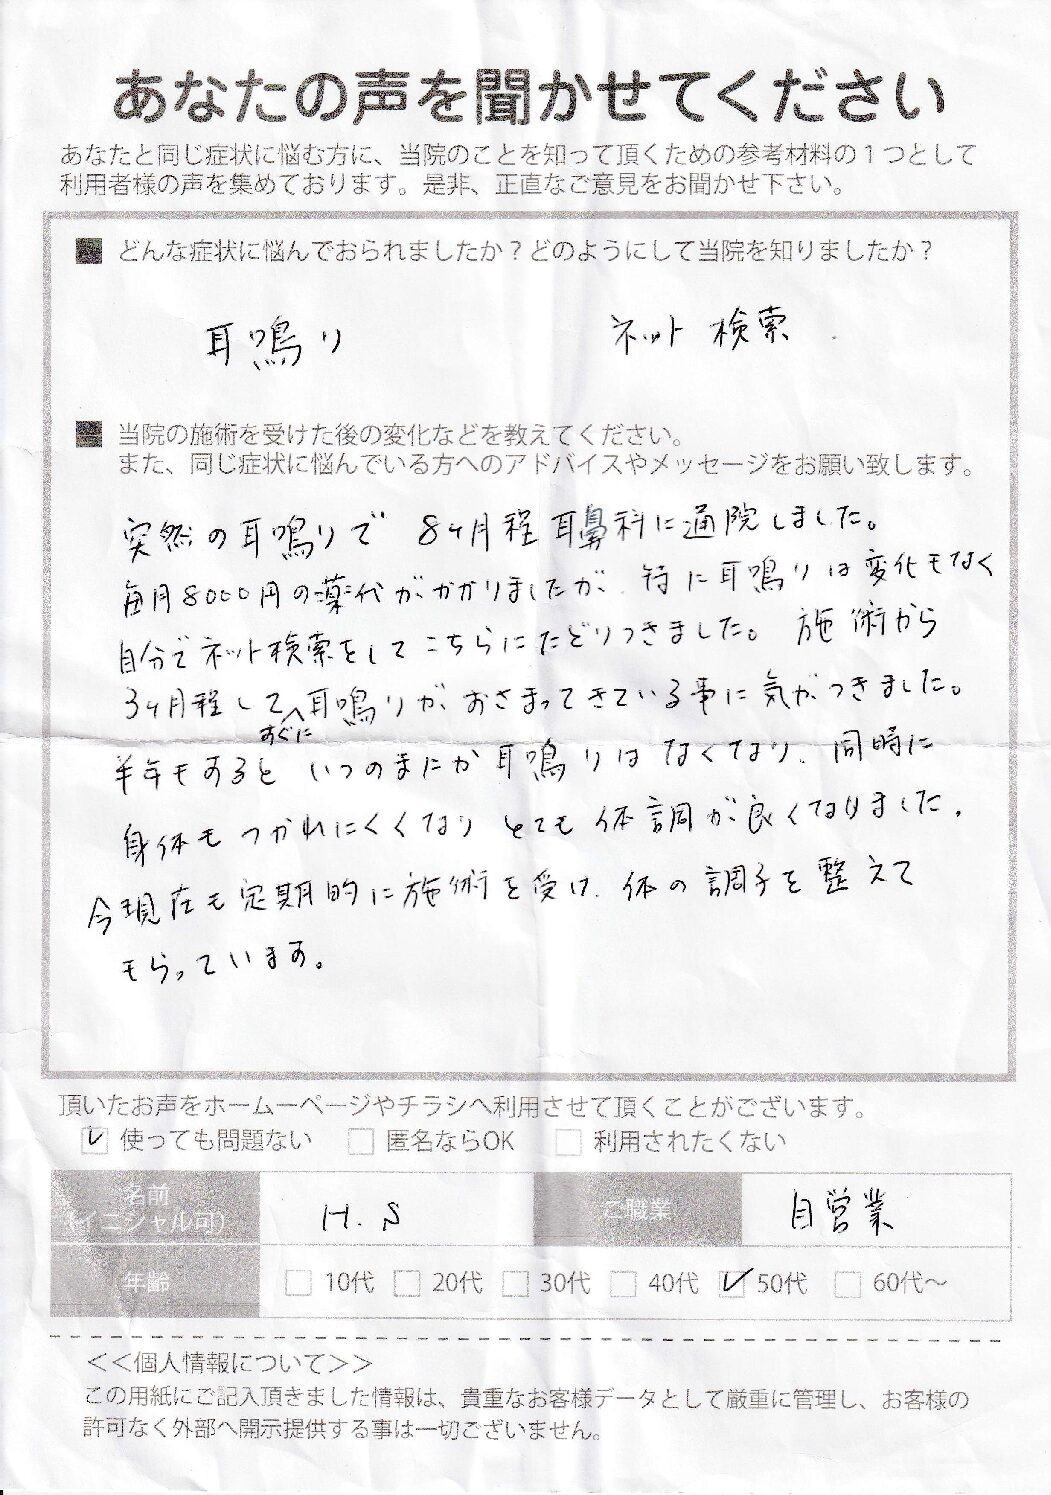 あなたの声を聞かせてください
あなたと同じ症状に悩む方に、当院のことを知って頂くための参考材料の1つとして
利用者様の声を集めております。是非、正直なご意見をお聞かせ下さい。
■ どんな症状に悩んでおられましたか？どのようにして当院を知りましたか？
耳鳴り ネット検索
■ 当院の施術を受けた後の変化などを教えてください。
また、同じ症状に悩んでいる方へのアドバイスやメッセージをお願い致します。
突然の耳鳴りで 8ヶ月程耳鼻科に通院しました。
毎月8000円の薬代がかかりましたが、特に耳鳴りは変化もなく
自分でネット検索をしてこちらにたどりつきました。 施術から
3ヶ月程して耳鳴りがおさまってきている事に気がつきました。
すぐに
半年もするといつのまにか耳鳴りはなくなり、同時に
身体もつかれにくくなりとても体調が良くなりました。
今現在も定期的に施術を受け、体の調子を整えて
もらっています。
頂いたお声をホームーページやチラシへ利用させて頂くことがございます。
使っても問題ない 匿名ならOK 利用されたくない
名前 H.S ご職業 自営業
（イニシャル可）
年齢 10代 20代 30代 40代 50代 60代～
＜＜個人情報について＞＞
この用紙にご記入頂きました情報は、貴重なお客様データとして厳重に管理し、お客様の
許可なく外部へ開示提供する事は一切ございません。